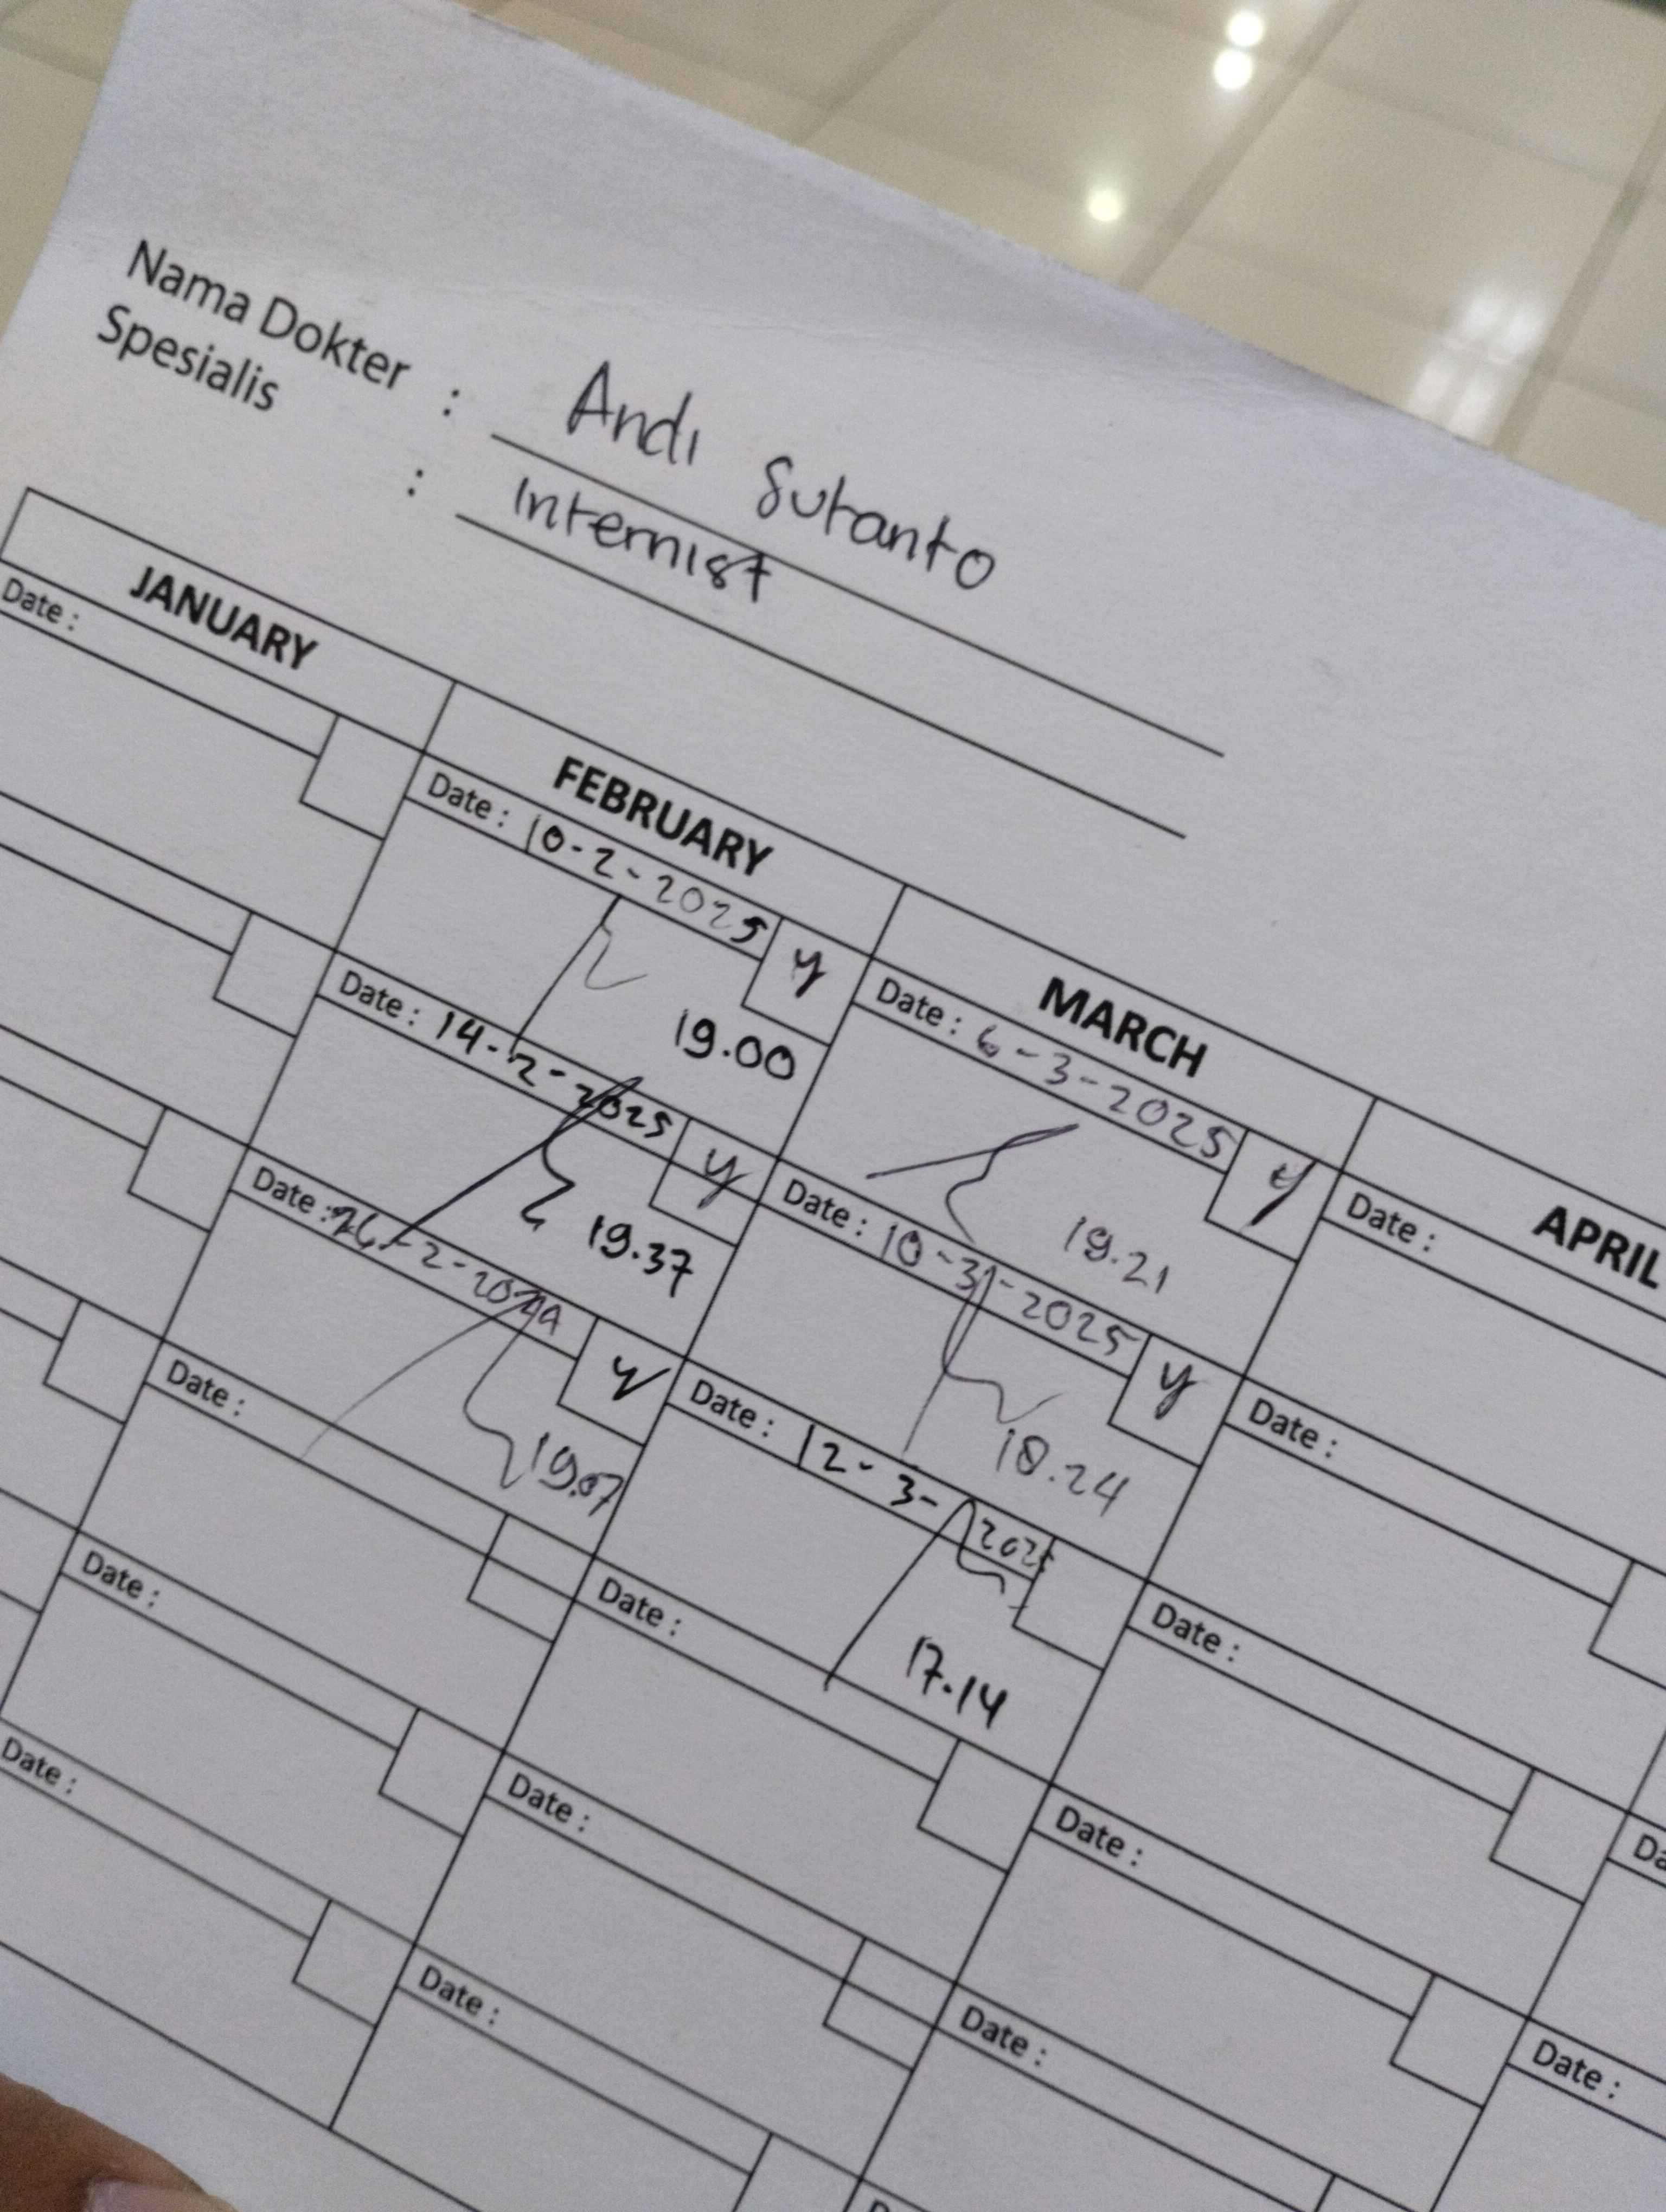 Nama Dokter : Andi Sutanto
Spesialis : Internist
JANUARY FEBRUARY MARCH APRIL
Date :
Date : 10-2-2025 y
19.00
Date : 14-2-2025 y
19.37
Date : 26-2-20 y
19.07
Date :
Date :
Date :
Date :
Date : 6-3-2025 y
19.21
Date : 10-3-2025 y
18.24
Date : 12-3-2025
17.14
Date :
Date :
Date :
Date :
Date :
Date :
Date :
Da
Date :